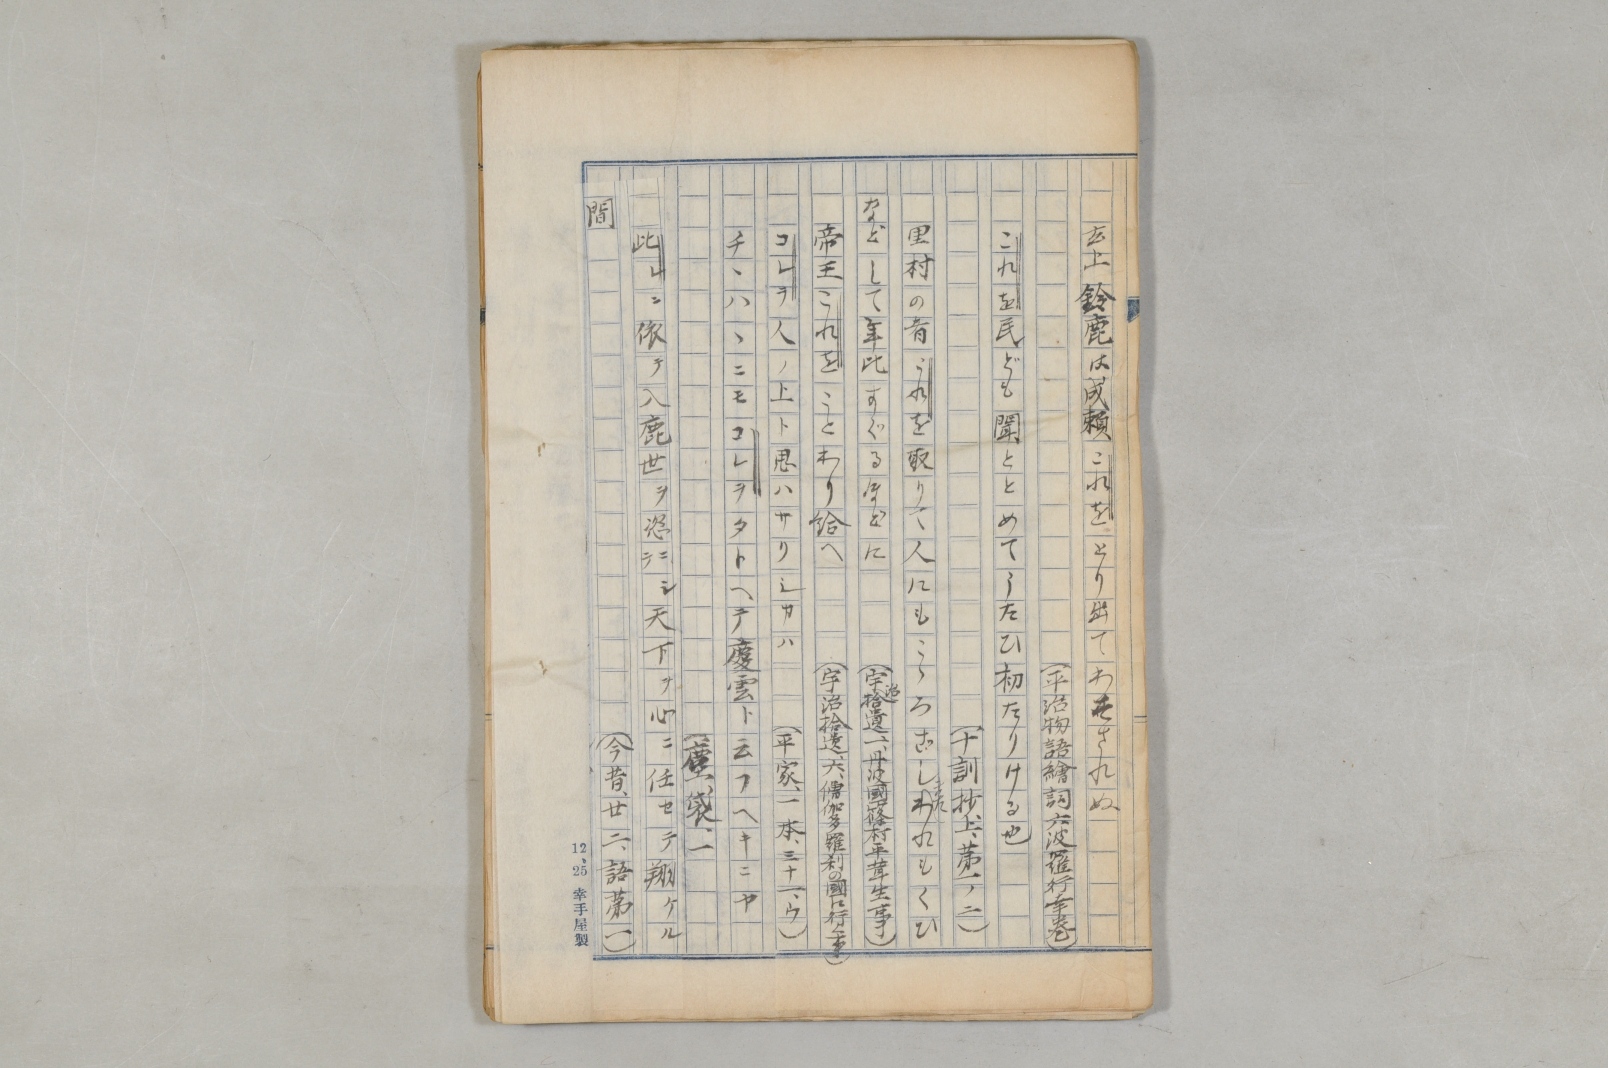 玄上鈴鹿は成頼これをとり出てわたされぬ
(平治物語繪詞六波羅行幸巻)
これを民ども聞とゝめてうたひ初たりける也
(十訓抄上、第一ノ二)
里村の者これを取りて人にもこゝろざしわれもくひ
などして年比すぐるほどに
(宇治拾遺一、丹波國篠村平茸生事)
帝王これをことわり給へ
(宇治拾遺、六、僧伽多羅刹の國に行く事)
コレヲ人ノ上ト思ハサリシカハ
(平家、一本、三十一、ウ)
チヽハヽニモコレヲタトヘテ慶雲ト云フヘキニヤ
(塵袋、一)
此レニ依テ入鹿世ヲ恣ニシテ天下ヲ心ニ任セテ翔ケル
間
(今昔、廿二、語第一)
12、25 幸手屋製